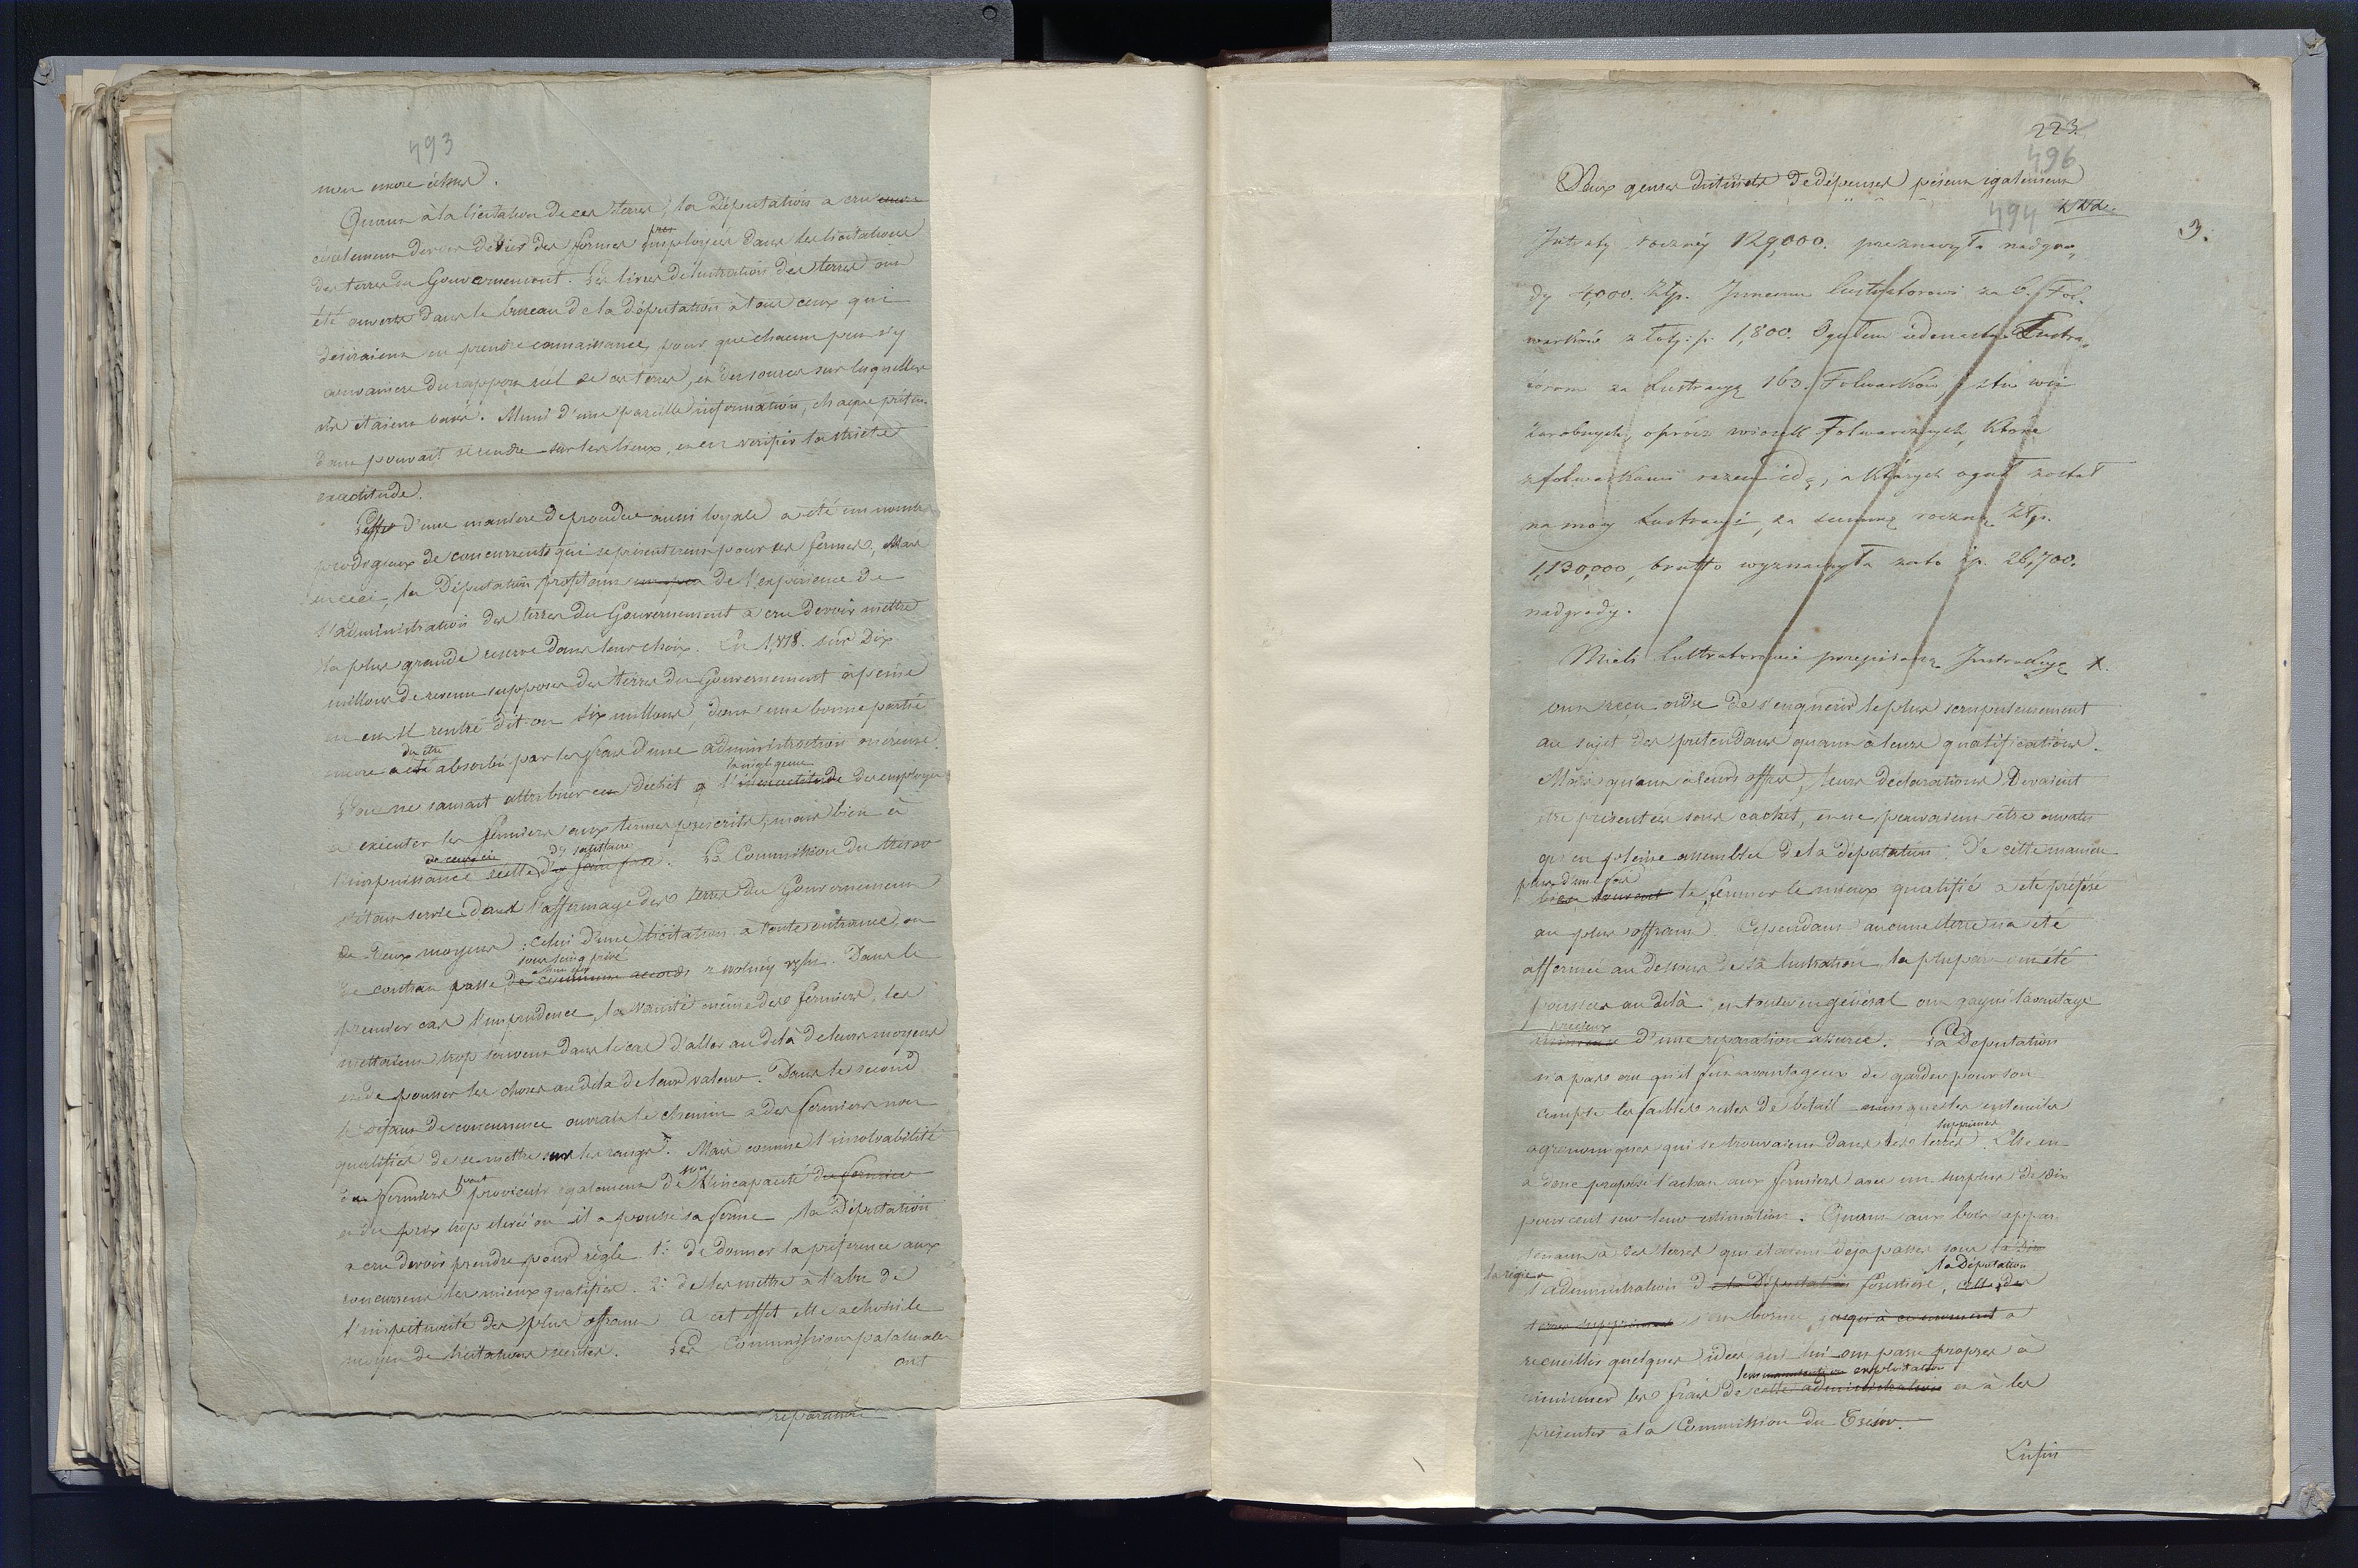 493
non encore échus.
Quant à la licitation de ces terres, la Députation a cru encore
également devoir dévier des formes employées dans les licitations
des terres du Gouvernement. Les livres de lustration des terres ont
été ouverts dans le bureau de la députation à tous ceux qui
désiraient en prendre connaissance, pour que chacun peu s'y
du rapport réel de ces terres, et des sources sur lesquelles
ils étaient basés. Muni d'une pareille information, chaque préten-
dant pouvait se rendre sur les lieux, et en verifier la stricte
exactitude.
L'effet d'une manière de proceder aussi loyale a été un nombre
prodigieux de concurrents qui se présentèrent pour ces fermes. Mais
en ceci, la Députation profitant de l'expérience de
l'administration des terres du Gouvernement a cru devoir mettre
la plus grande reserve dans leur choix. En 1,818. sur Dix
millions de revenu supposés des terres du Gouvernement à peine
en est rentré dit-on six millions, dont une bonne partie
du être
encore a été absorbé par les frais d'une administration onéreuse.
la négligence
L'on ne saurait attribuer ce déchet à l'inexactitude des employés
à exécuter les fermiers aux termes prescrits, mais bien à
de ceux ci d'y satisfaire
l'impuissance réelle d'y faire face. La Commission du trésor
s'étant servie dans l'affermage des terres du Gouvernement
de deux moyens: celui d'une licitation à toute outrance, ou
sous seing privé
de contrat passé de commun accord z wolnéy ręki. Dans le
premier cas l'imprudence, la vanité même des fermiers, les
mettaient trop souvent dans le cas d'aller au delà de leurs moyens
et de pousser les choses au delà de leur valeur. Dans le second
le défaut de concurrence ouvrait le chemin à des fermiers non
qualifiés de se mettre sur les rangs. Mais comme l'insolvabilité
du fermier provient également de son l'incapacité du fermier
et du prix trop élevé où il a poussé sa ferme, la Députation
a cru devoir prendre pour règle 1° de donner la préférence aux
concurrens les mieux qualifiés. 2° de les mettre à l'abri de
l'impétuosité des plus offrans. A cet effet elle a choisi le
moyen de licitations secrètes. Les Commissions palatinales
ont
réparation
223.
496
Deux genres distincts de dépenses pèsent également
494
3.
Intraty roczney 129,000. przeznaczyła nadgro-
dy 4,000. Złp. Innemu Lustratorowi za 6. Fol-
warków złotp. 1,800. Ogułem iedenastu Lustra-
torom za Lustracyę 163. Folwarków,
zarobnych, oprócz wiosek Folwarcznych, które
z folwarkami razem idą, a których ogół został
na mocy Lustracyi, za summę roczną Złp.
1,130,000, brutto wyznaczyła zł. 26,700.
nadgrody.
Mieli Lustratorowie przepisaną Instrukcyę X.
ont reçu ordre de s'enquérir le plus scrupuleusement
au sujet des prétendans quant à leurs qualifications.
Mais quant à leurs offres, leurs déclarations devaient
être présentées sous cachet, et ne pouvaient être ouvertes
qu'en pleine assemblée de la députation. De cette manière
plus d'une fois
bien souvent le fermier le mieux qualifié a été préféré
au plus offrant. Cependant aucune terre n'a été
affermée au dessous de sa lustration, la plupart ont été
poussées au delà, et toutes en général ont gagné l'avantage
précieux
d'une réparation assurée. La Députation
n'a pas cru qu'il fut avantageux de garder pour son
compte les faibles restes de bétail ainsi que les ustenciles
supprimées
agronomiques qui se trouvaient dans les terres. Elle en
a donc proposé l'achat aux fermiers avec un surplus de dix
pour cent sur leur estimation. Quant aux bois appar-
tenant à ces terres qui étaient déja passés sous la
la Députation
l'administration de la Députation forestière,
s'est bornée jusqu'à ce moment à
recueillir quelques idées qui lui ont paru propres à
exploitation
diminuer les frais de cette administration et à les
présenter à la Commission du Trésor.